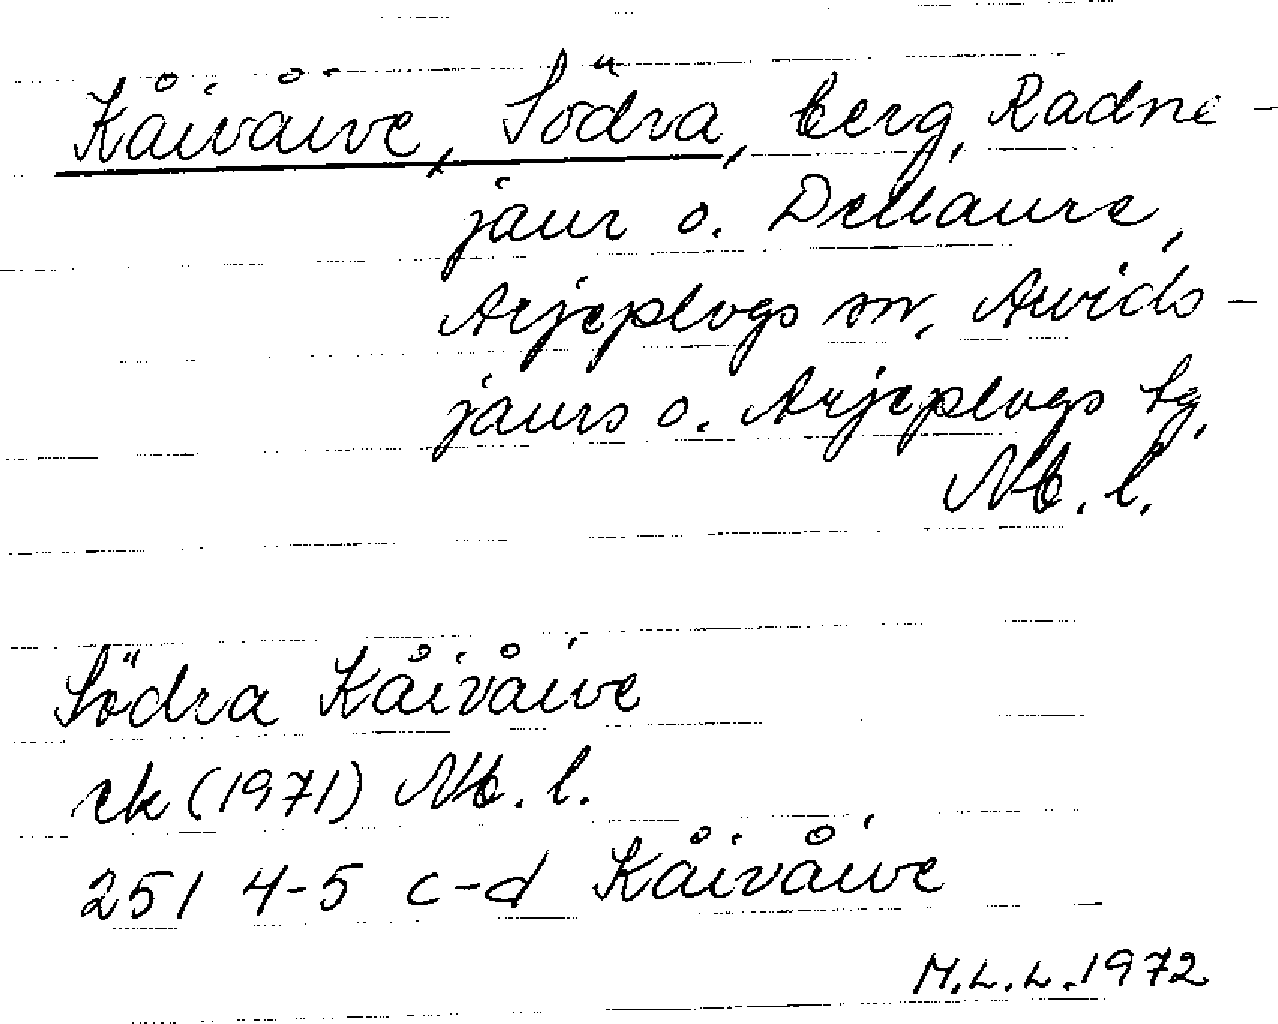 Kåivåive, Södra, berg, Radne-
jaur o. Dellaure,
Arjeplogs sn, Arvids-
jaurs o. Arjeplogs tg,
Nb. l.
Södra Kåivåive
ek (1971) Nb. l.
251 4-5 c-d Kåivåive
M.L.L. 1972